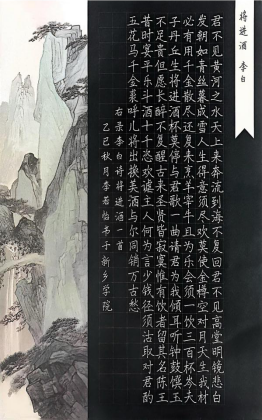 将进酒 李白
君不见黄河之水天上来奔流到海不复回君不见高堂明镜悲白
发朝如青丝暮成雪人生得意须尽欢莫使金樽空对月天生我材
必有用千金散尽还复来烹羊宰牛且为乐会须一饮三百杯岑夫
子丹丘生将进酒杯莫停与君歌一曲请君为我倾耳听钟鼓馔玉
不足贵但愿长醉不复醒古来圣贤皆寂寞惟有饮者留其名陈王
昔时宴平乐斗酒十千恣欢谑主人何为言少钱径须沽取对君酌
五花马千金裘呼儿将出换美酒与尔同销万古愁
右录李白诗将进酒一首
乙巳秋月李若怡书于新乡学院